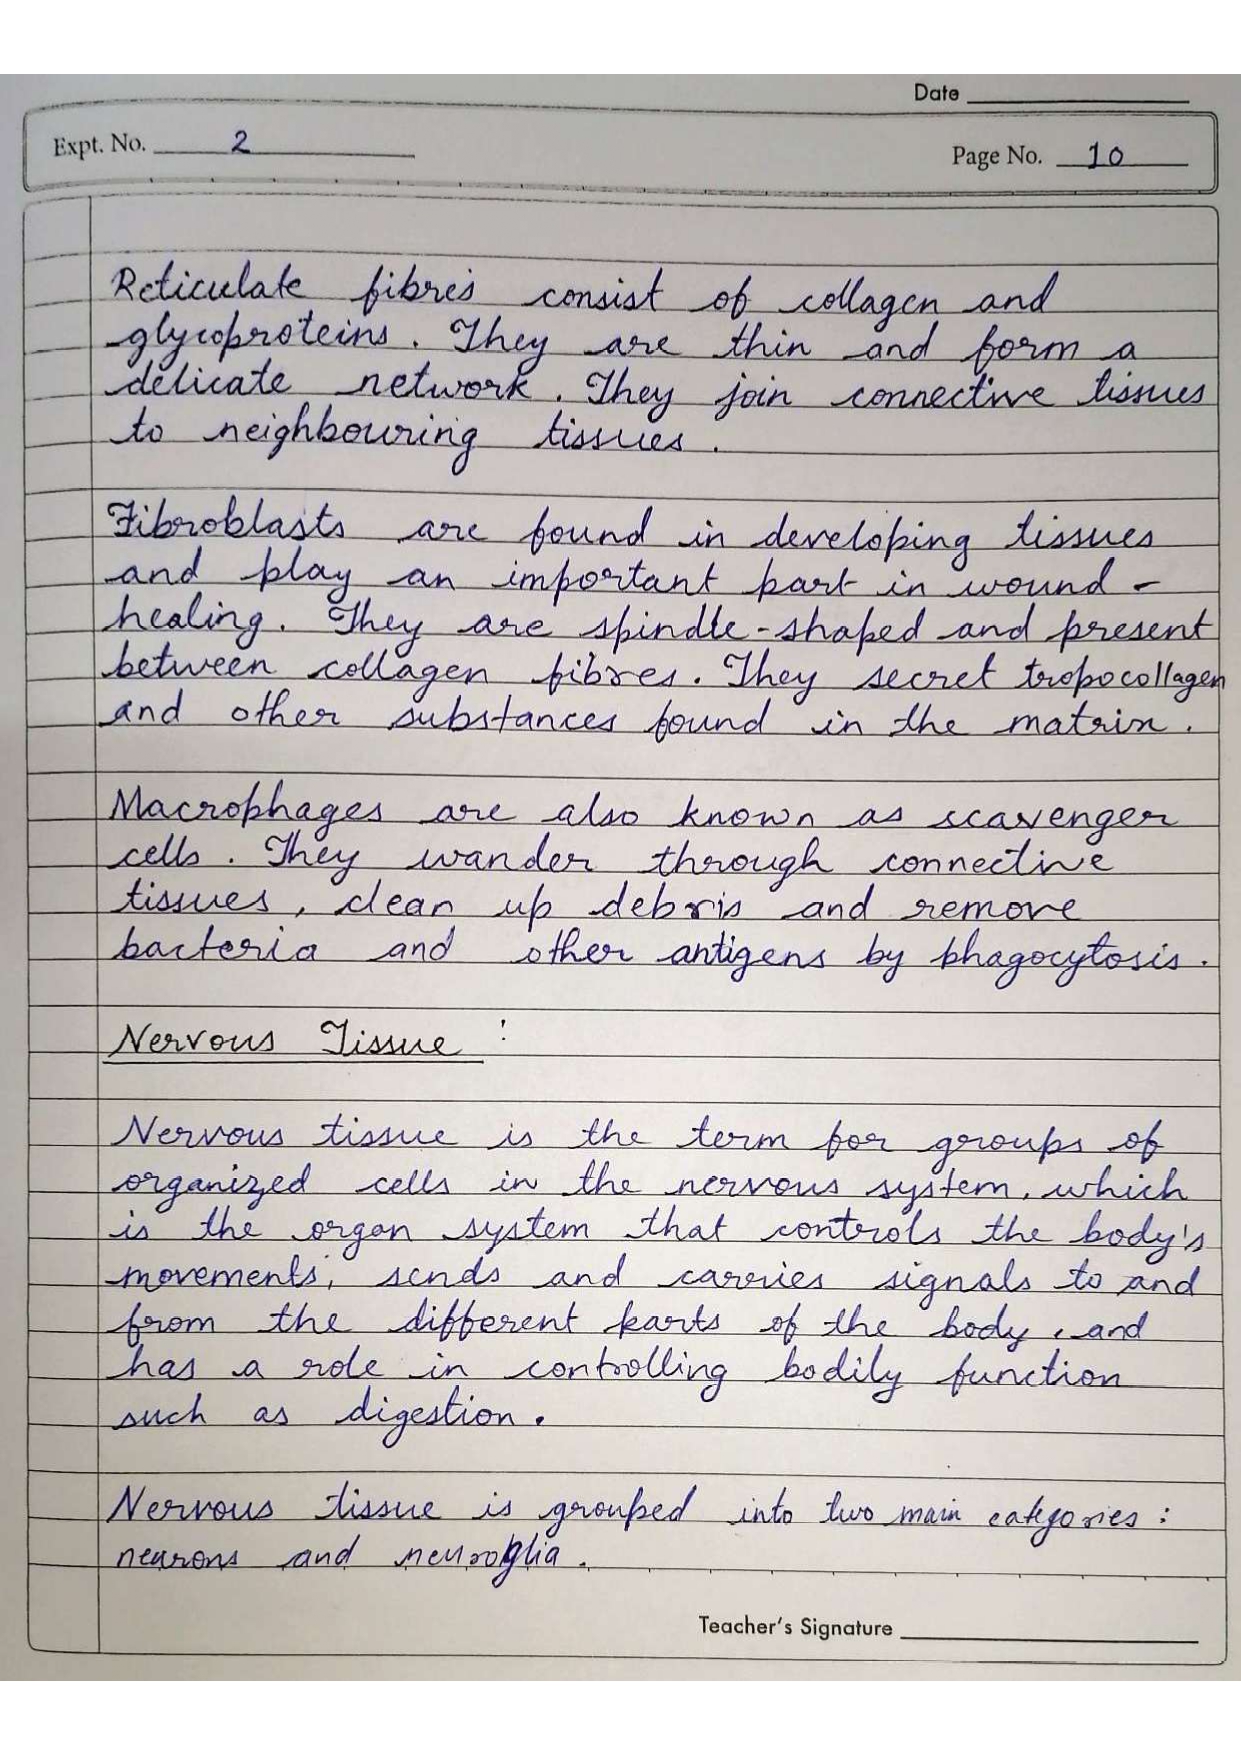 Date
Expt. No. 2
Page No. 10
Reticulate fibres consist of collagen and
glycoproteins. They are thin and form a
delicate network. They join connective tissues
to neighbouring tissues.
Fibroblasts are found in developing tissues
and play an important part in wound-
healing. They are spindle-shaped and present
between collagen fibres. They secret tropocollagen
and other substances found in the matrix.
Macrophages are also known as scavenger
cells. They wander through connective
tissues, clean up debris and remove
bacteria and other antigens by phagocytosis.
Nervous Tissue :
Nervous tissue is the term for groups of
organized cells in the nervous system, which
is the organ system that controls the body's
movements, sends and carries signals to and
from the different parts of the body, and
has a role in controlling bodily function
such as digestion.
Nervous tissue is grouped into two main categories :
neurons and neuroglia.
Teacher's Signature